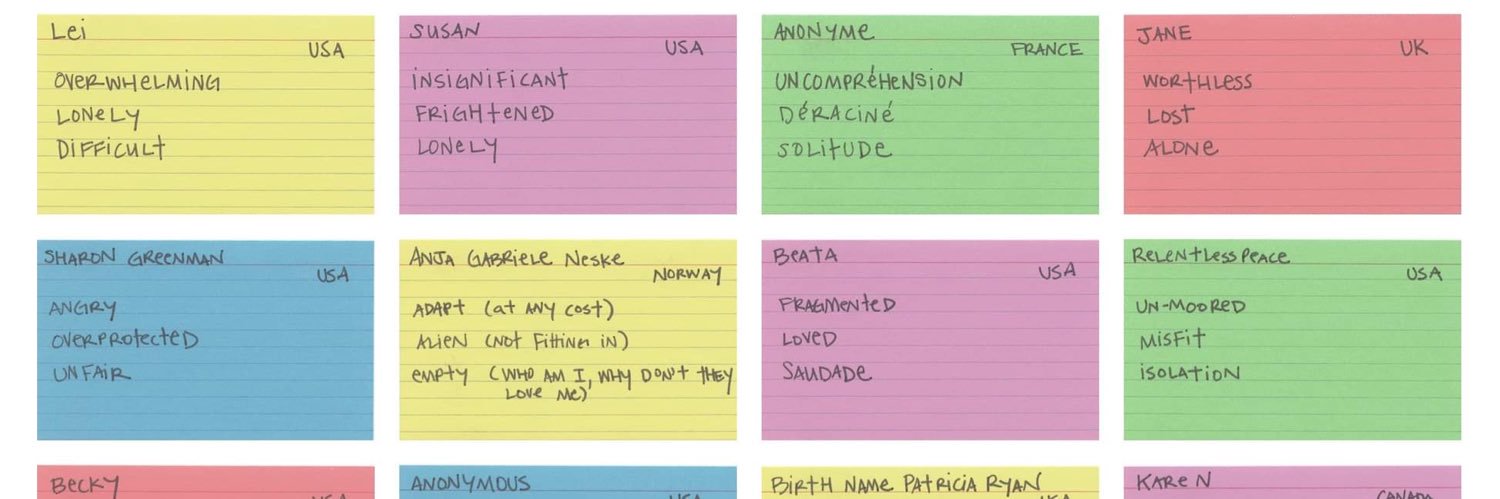 Lei
USA
OVERWHELMING
LONELY
DIFFICULT
SUSAN
USA
INSIGNIFICANT
FRIGHTENED
LONELY
ANONYME
FRANCE
UNCOMPRéHENSION
DéRACINé
SOLITUDE
JANE
UK
WORTHLESS
LOST
ALONE
SHARON GREENMAN
USA
ANGRY
OVERPROTECTED
UNFAIR
ANJA GABRIELE NESKE
NORWAY
ADAPT (at ANY COST)
ALIEN (NOT FITTING IN)
EMPTY (WHO AM I, WHY DON'T THEY
LOVE ME)
BEATA
USA
FRAGMENTED
LOVED
SAUDADE
RELENTLESS PEACE
USA
UN-MOORED
MISFIT
ISOLATION
BECKY
USA
ANONYMOUS
USA
BIRTH NAME PATRICIA RYAN
USA
KAREN
CANADA